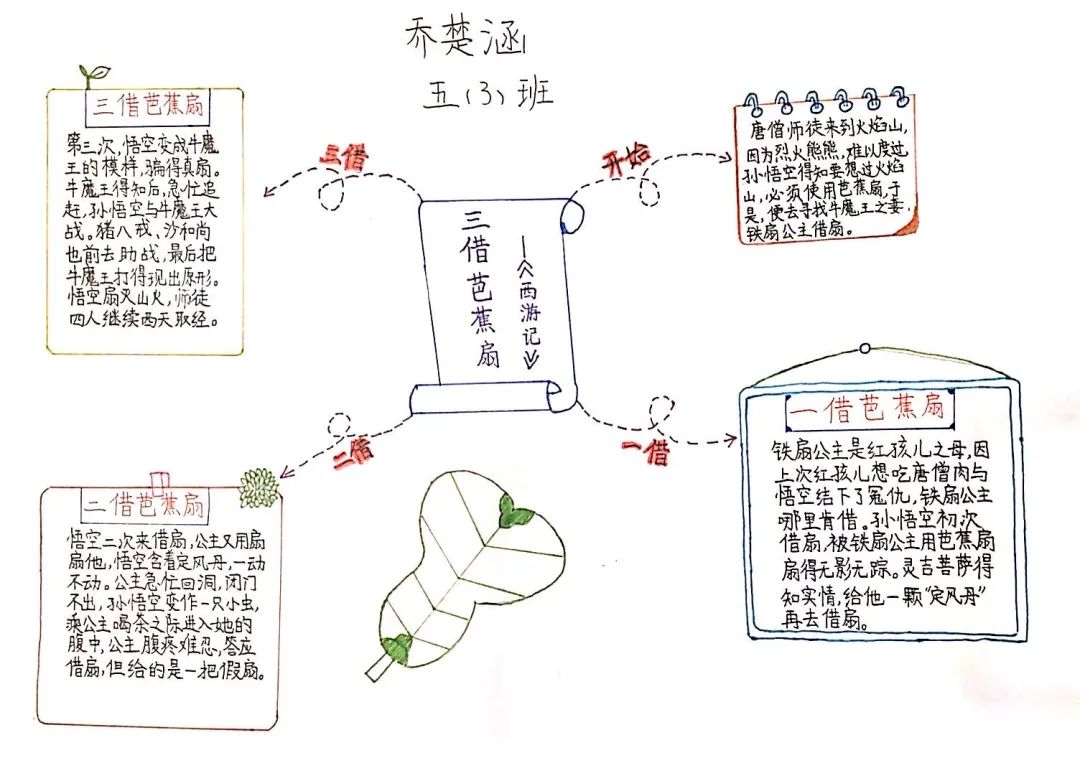 乔楚涵
五(3)班
三借芭蕉扇
——《西游记》
开始
唐僧师徒来到火焰山,
因为烈火熊熊,难以度过,
孙悟空得知要想过火焰
山,必须使用芭蕉扇,于
是,便去寻找牛魔王之妻,
铁扇公主借扇。
一借
一借芭蕉扇
铁扇公主是红孩儿之母,因
上次红孩儿想吃唐僧肉与
悟空结下了冤仇,铁扇公主
哪里肯借。孙悟空初次
借扇,被铁扇公主用芭蕉扇
扇得无影无踪。灵吉菩萨得
知实情,给他一颗“定风丹”
再去借扇。
二借
二借芭蕉扇
悟空二次来借扇,公主又用扇
扇他,悟空含着定风丹,一动
不动。公主急忙回洞,闭门
不出,孙悟空变作一只小虫,
乘公主喝茶之际进入她的
腹中,公主腹疼难忍,答应
借扇,但给的是一把假扇。
三借
三借芭蕉扇
第三次,悟空变成牛魔
王的模样,骗得真扇。
牛魔王得知后,急忙追
赶,孙悟空与牛魔王大
战。猪八戒、沙和尚
也前去助战,最后把
牛魔王打得现出原形。
悟空扇灭山火,师徒
四人继续西天取经。